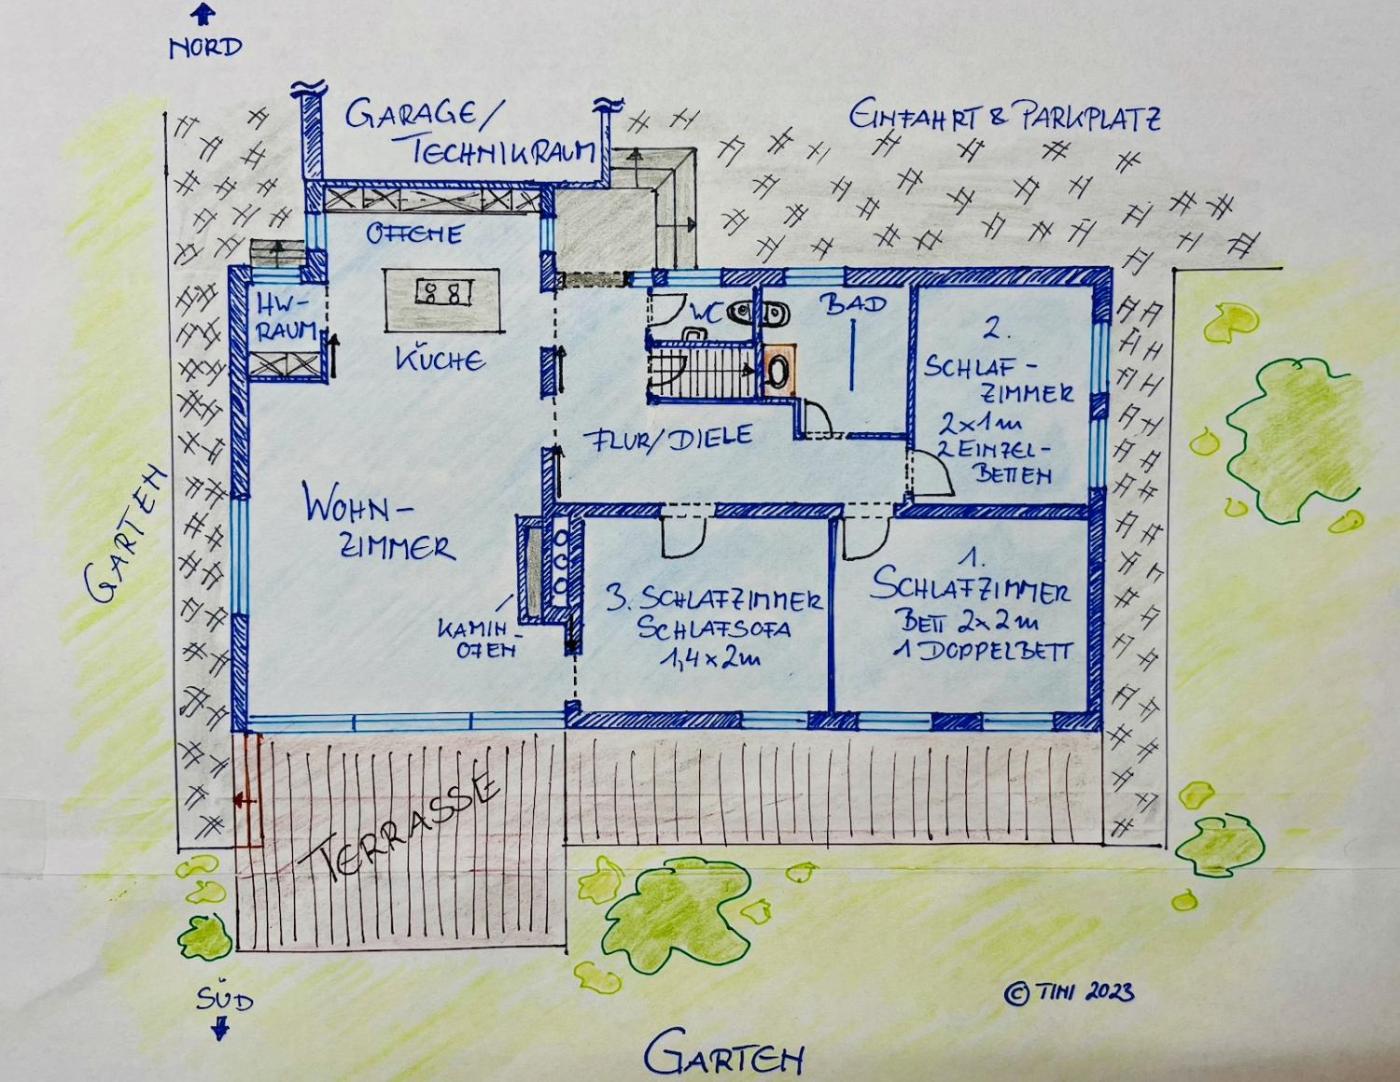 NORD
GARAGE/
TECHNIKRAUM
EINFAHRT & PARKPLATZ
OFFENE
HW-
RAUM
KÜCHE
WC
BAD
2.
SCHLAF-
ZIMMER
2x1m
2 EINZEL-
BETTEN
FLUR/DIELE
GARTEN
WOHN-
ZIMMER
KAMIN-
OFEN
3. SCHLAFZIMMER
SCHLAFSOFA
1,4x2m
1.
SCHLAFZIMMER
BETT 2x2m
1 DOPPELBETT
TERRASSE
SÜD
© TINI 2023
GARTEN